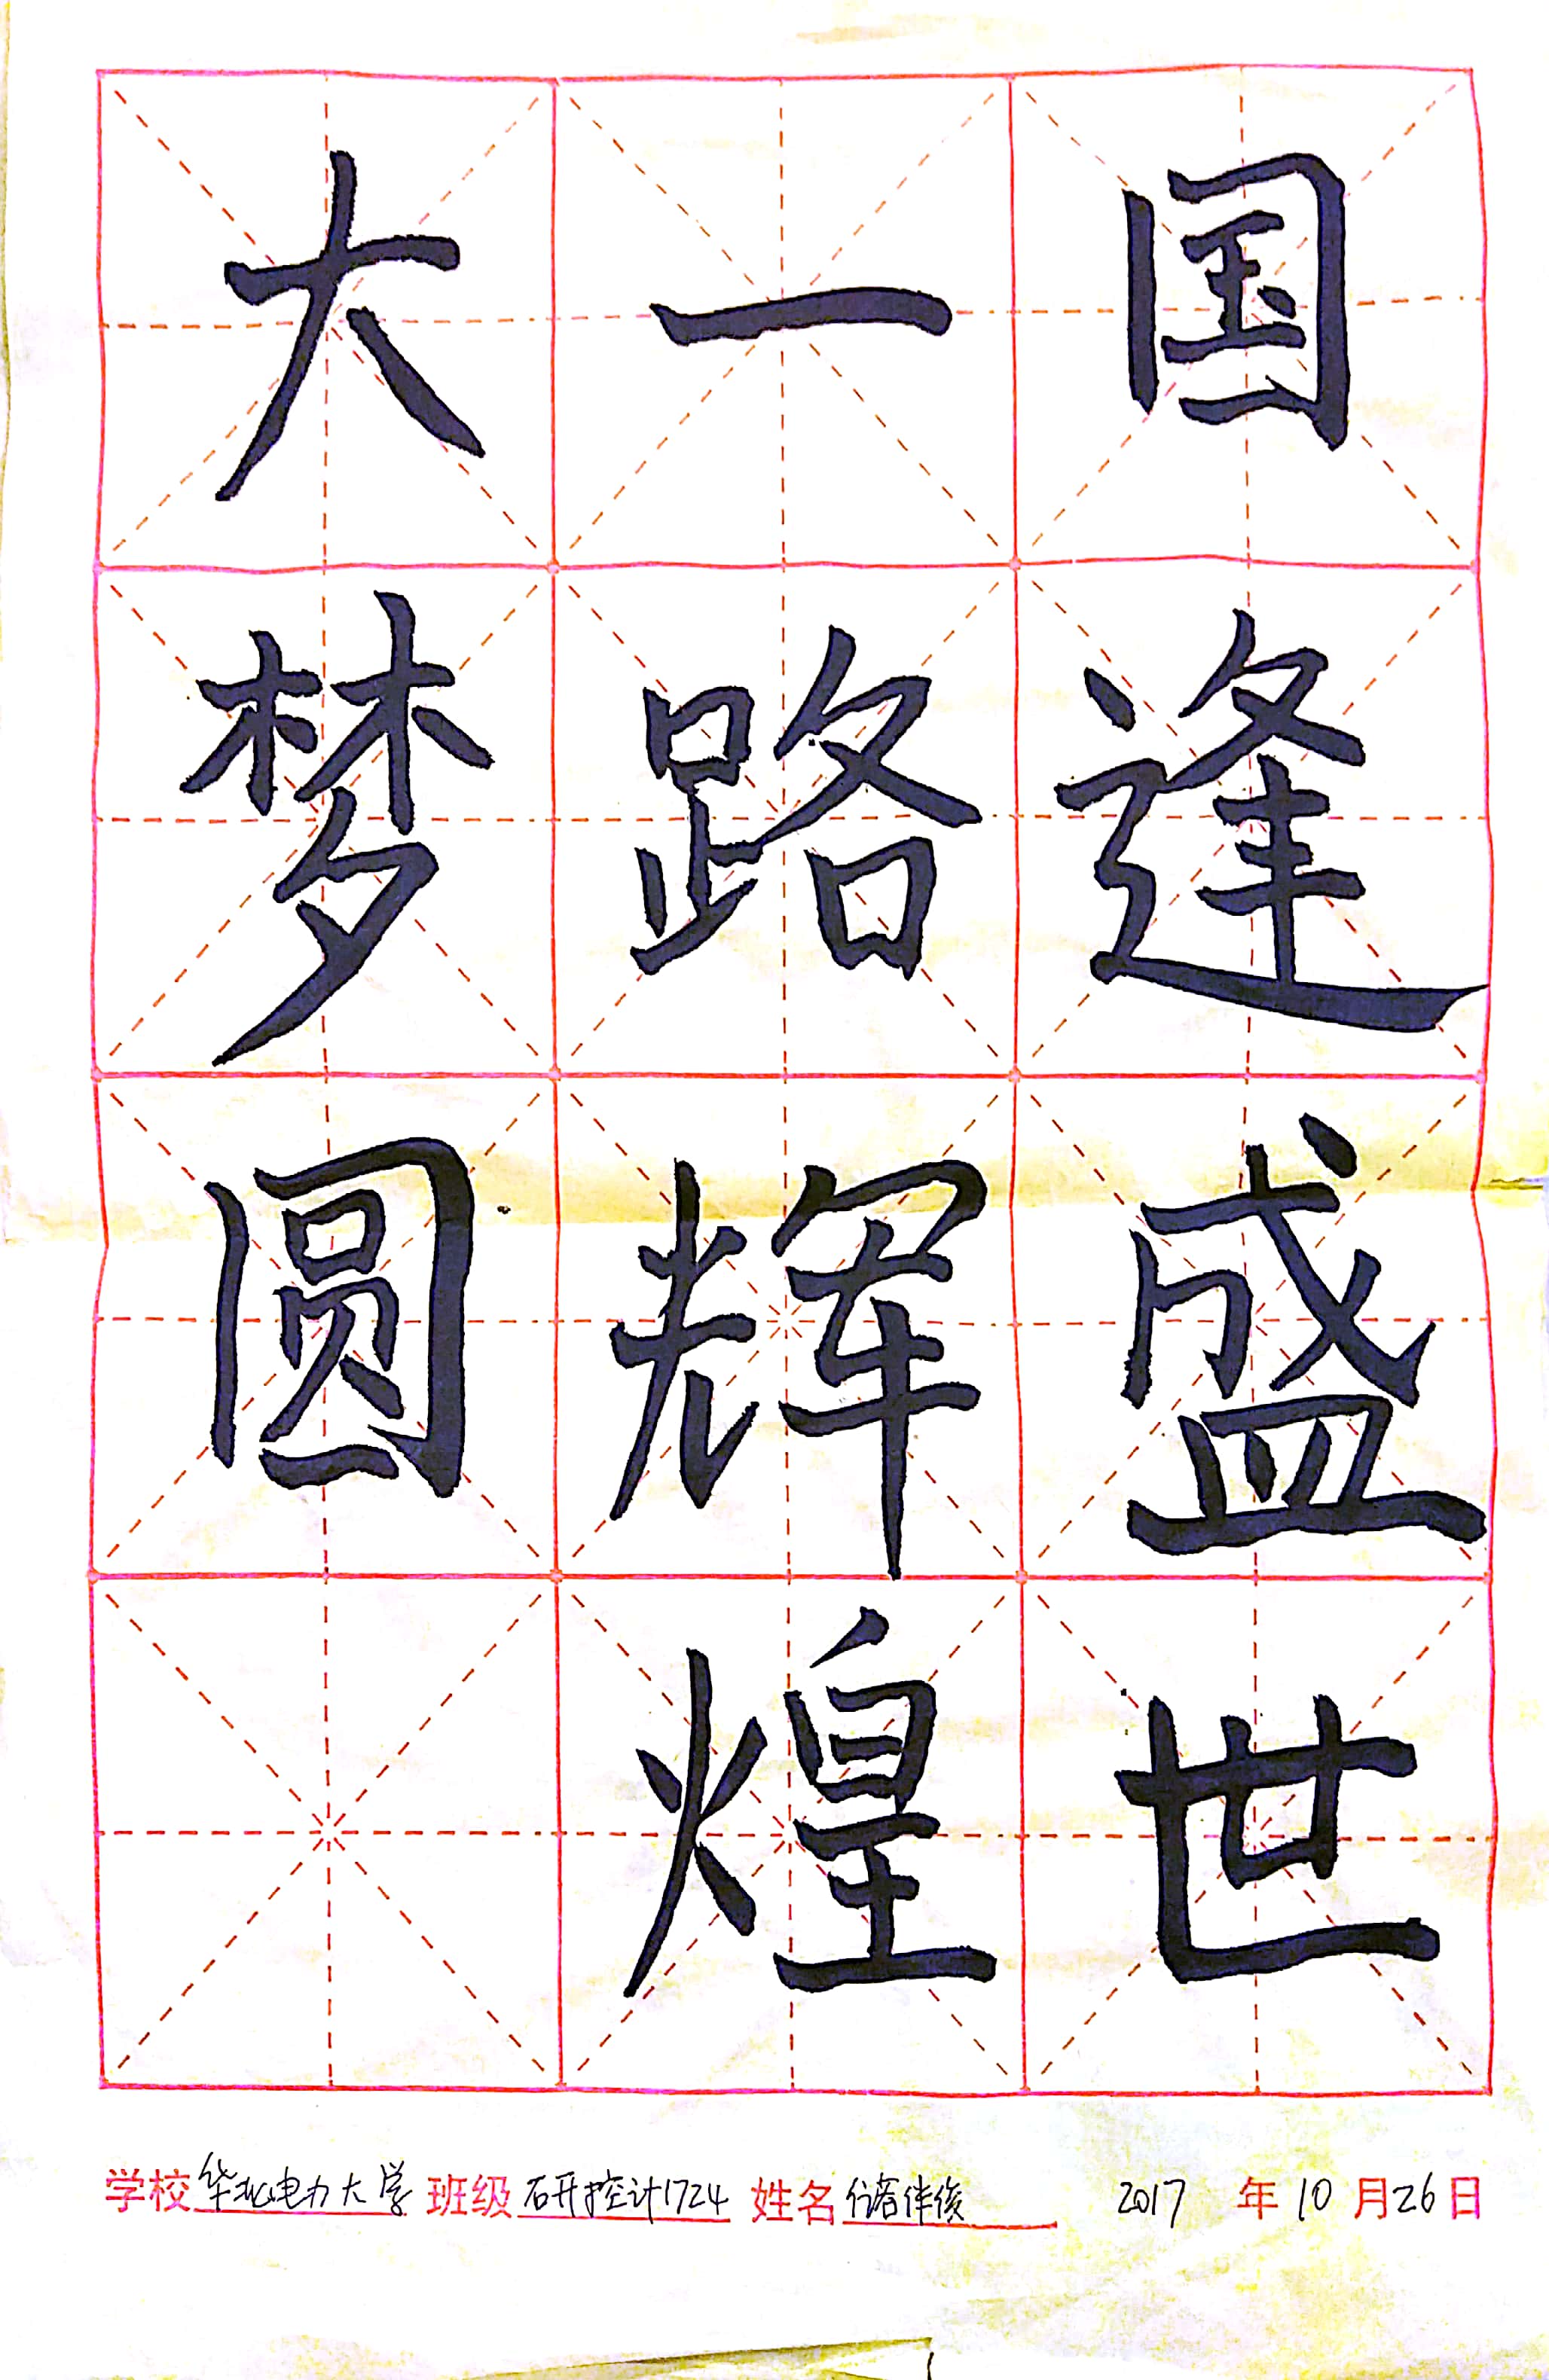 国逢盛世
一路辉煌
大梦圆
学校 华北电力大学 班级 研控计1724 姓名 储伴俊 2017 年 10 月 26 日